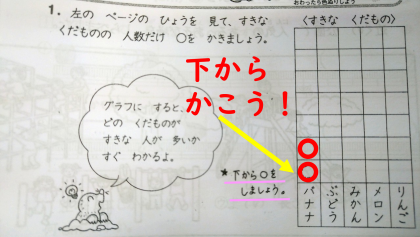 おわったら色ぬりしよう
1. 左の ページの ひょうを 見て、すきな
くだものの 人数だけ ○を かきましょう。
〈すきな くだもの〉
下から
かこう！
グラフに すると、
どの くだものが
すきな 人が 多いか
すぐ わかるよ。
★下から○を
しましょう。
バナナ
ぶどう
みかん
メロン
りんご